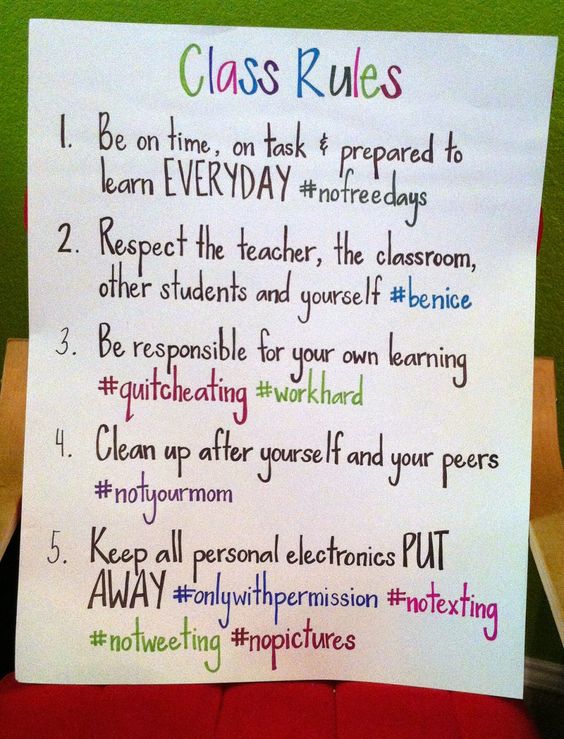 Class Rules
1. Be on time, on task & prepared to
learn EVERYDAY #nofreedays
2. Respect the teacher, the classroom,
other students and yourself #benice
3. Be responsible for your own learning
#quitcheating #workhard
4. Clean up after yourself and your peers
#notyourmom
5. Keep all personal electronics PUT
AWAY #onlywithpermission #notexting
#notweeting #nopictures